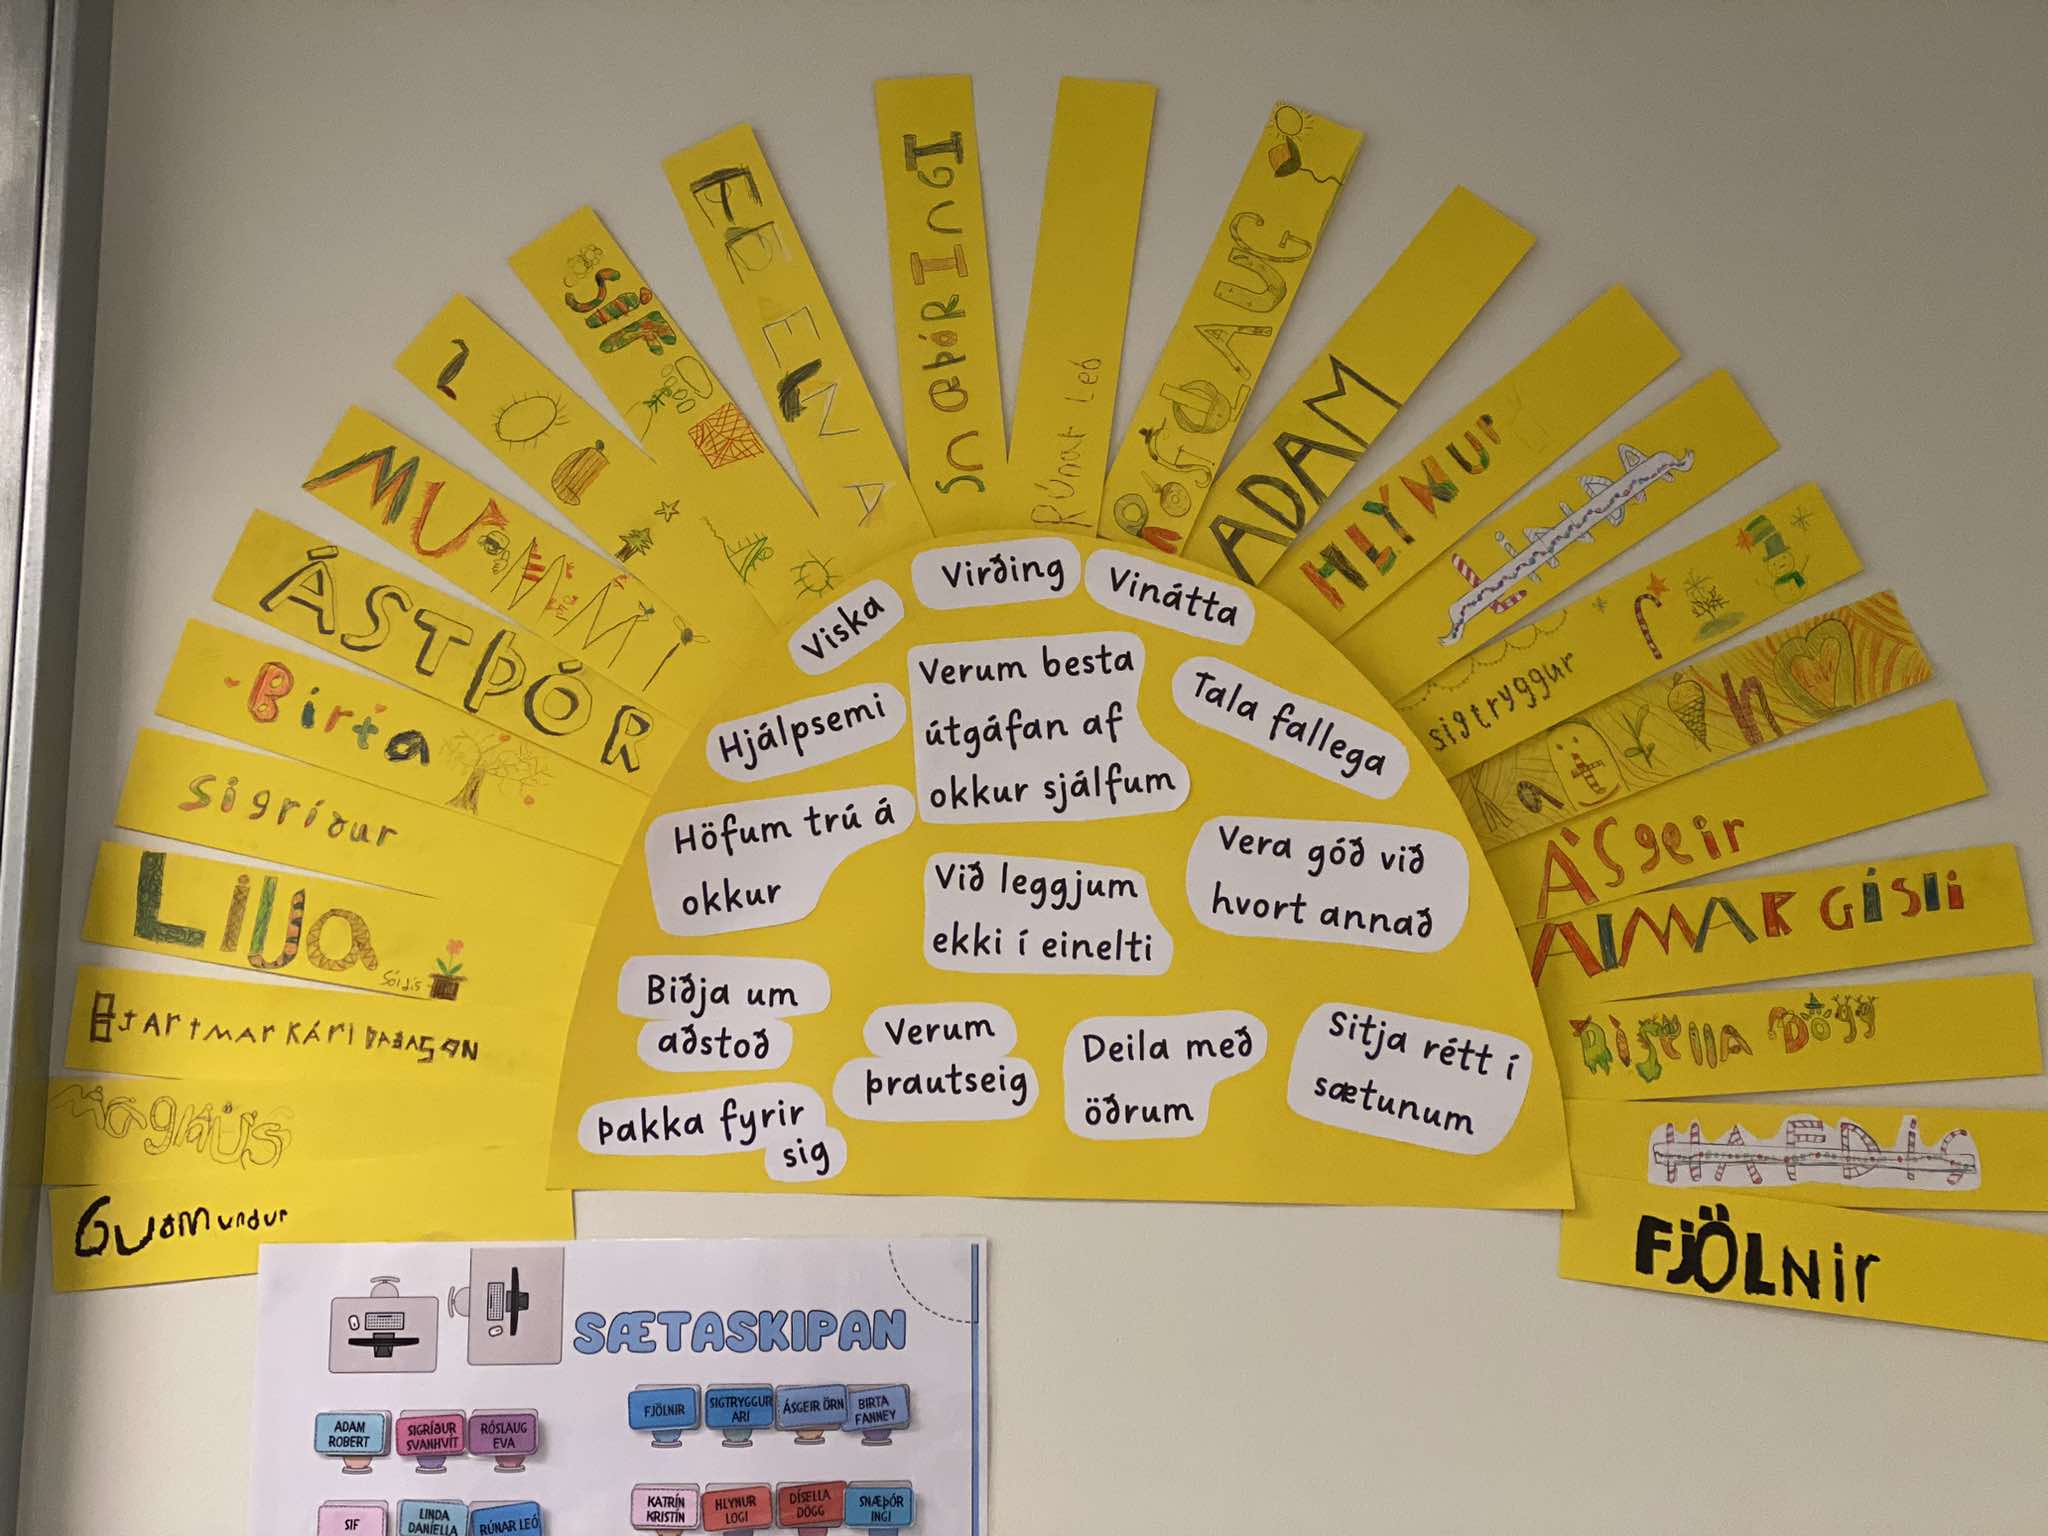 Guðmundur
Magnús
Lilja
Sóldís
Sigríður
Birta
ÁSTÞÓR
MUMMI
LÓA
Sif
SnæþóR IngI
Rúnar Leó
RÓSLAUG
ADAM
HLYNUr
Linda
sigtryggur
Katrín
Ásgeir
ALMAR GÍSLI
DÍSElla Dögg
HAFDÍS
FJÖLNir
Viska
Virðing
Vinátta
Hjálpsemi
Verum besta
útgáfan af
okkur sjálfum
Tala fallega
Höfum trú á
okkur
Við leggjum
ekki í einelti
Vera góð við
hvort annað
Biðja um
aðstoð
Verum
þrautseig
Deila með
öðrum
Sitja rétt í
sætunum
Þakka fyrir
sig
SÆTASKIPAN
ADAM
ROBERT
SIGRÍÐUR
SVANHVÍT
RÓSLAUG
EVA
FJÖLNIR
SIGTRYGGUR
ARI
ÁSGEIR ÖRN
BIRTA
FANNEY
SIF
LINDA
DANÍELLA
RÚNAR LEÓ
KATRÍN
KRISTÍN
HLYNUR
LOGI
DÍSELLA
DÖGG
SNÆÞÓR
INGI